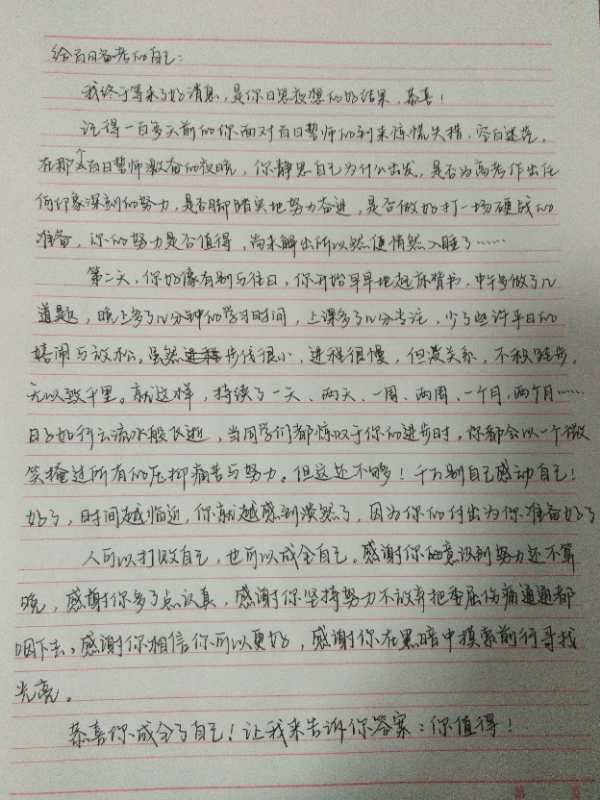 给百日备考的自己：
我终于等来了好消息，是你日思夜想的好结果，恭喜！
记得一百多天前的你面对百日誓师的到来惊慌失措，空白迷茫，
在那个百日誓师激奋的夜晚，你静思自己为什么出发，是否为高考作出任
何印象深刻的努力，是否脚踏实地努力奋进，是否做好打一场硬战的
准备，你的努力是否值得，尚未解出所以然便悄然入睡了……
第二天，你好像有别与往日，你开始早早地起床背书，中午多做了几
道题，晚上多了几分钟的学习时间，上课多了几分专注，少了些许平日的
嬉闹与放松。虽然步伐很小，进程很慢，但没关系，不积跬步，
无以致千里。就这样，持续了一天、两天、一周、两周、一个月，两个月……
日子如行云流水般飞逝，当同学们都惊叹于你的进步时，你都会以一个微
笑掩过所有的压抑痛苦与努力。但这还不够！千万别自己感动自己！
好了，时间越临近，你就越感到淡然了，因为你的付出为你准备好了
人可以打败自己，也可以成全自己。感谢你意识到努力还不算
晚，感谢你多了点认真，感谢你坚持努力不放弃把委屈伤痛通通都
咽下去。感谢你相信你可以更好，感谢你在黑暗中摸索前行寻找
光亮。
恭喜你成全了自己！让我来告诉你答案：你值得！
第 页